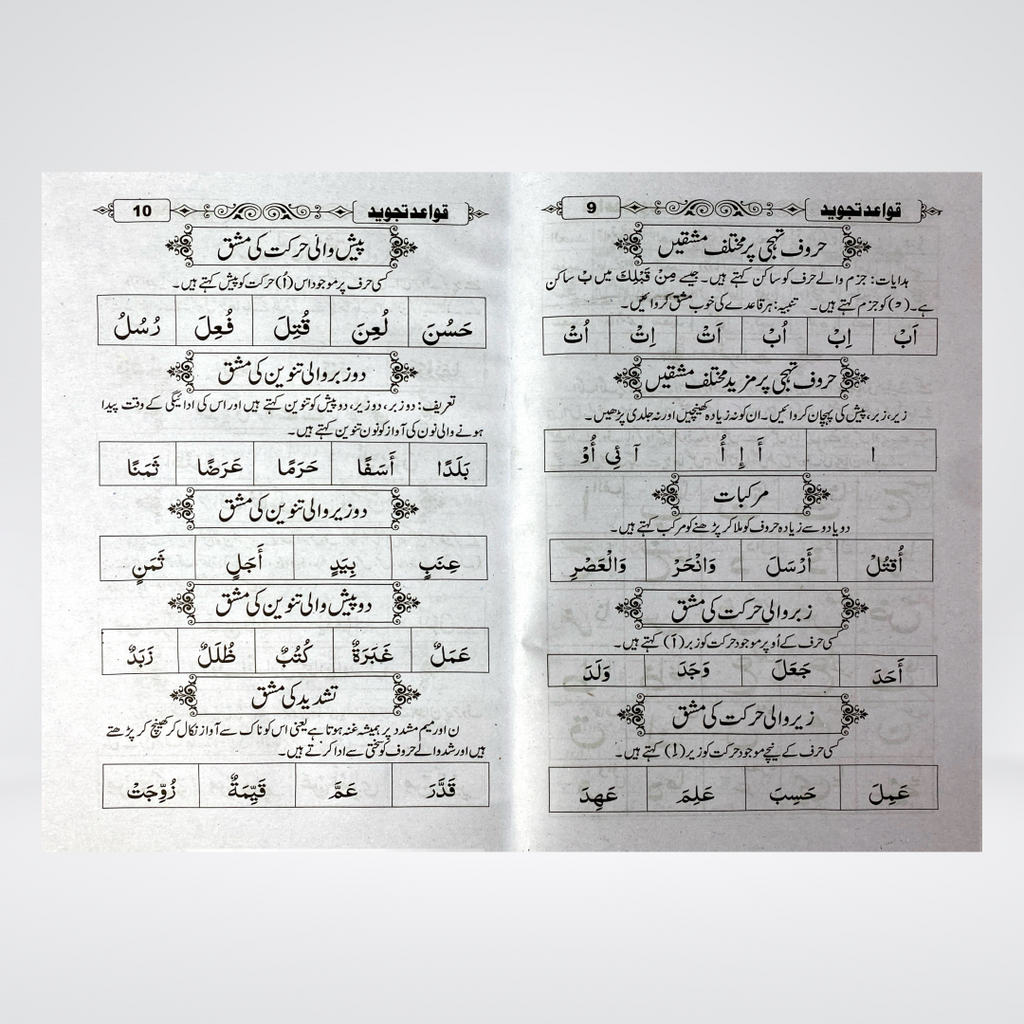 قواعد تجوید 9
حروف تہجی پر مختلف مشقیں
ہدایات: جزم والے حرف کو ساکن کہتے ہیں۔ جیسے مِنْ قَبْلِكَ میں بْ ساکن
ہے۔ (ـْ) کو جزم کہتے ہیں۔ تنبیہ: ہر قاعدے کی خوب مشق کروائیں۔
اَبْ اِبْ اُبْ اَتْ اِتْ اُتْ
حروف تہجی پر مزید مختلف مشقیں
زیر، زبر، پیش کی پہچان کروائیں۔ ان کو نہ زیادہ کھینچیں اور نہ جلدی پڑھیں۔
ا أَ إِ أُ آ ئِي أُوْ
مرکبات
دو یا دو سے زیادہ حروف کو ملا کر پڑھنے کو مرکب کہتے ہیں۔
أُقْتُلْ أَرْسَلَ وَانْحَرْ وَالْعَصْرِ
زبر والی حرکت کی مشق
کسی حرف کے اُوپر موجود حرکت کو زبر (اَ) کہتے ہیں۔
أَحَدَ جَعَلَ وَجَدَ وَلَدَ
زیر والی حرکت کی مشق
کسی حرف کے نیچے موجود حرکت کو زیر (اِ) کہتے ہیں۔
عَمِلَ حَسِبَ عَلِمَ عَهِدَ
قواعد تجوید 10
پیش والی حرکت کی مشق
کسی حرف پر موجود اس (اُ) حرکت کو پیش کہتے ہیں۔
حَسُنَ لُعِنَ قُتِلَ فُعِلَ رُسُلُ
دو زبر والی تنوین کی مشق
تعریف: دو زبر، دو زیر، دو پیش کو تنوین کہتے ہیں اور اس کی ادائیگی کے وقت پیدا
ہونے والی نون کی آواز کو نون تنوین کہتے ہیں۔
بَلَدًا أَسَفًا حَرَمًا عَرَضًا ثَمَنًا
دو زیر والی تنوین کی مشق
عِنَبٍ بِيَدٍ أَجَلٍ ثَمَنٍ
دو پیش والی تنوین کی مشق
عَمَلٌ غَبَرَةٌ كُتُبٌ ظُلَلٌ زَبَدٌ
تشدید کی مشق
ن اور میم مشدد پر ہمیشہ غنہ ہوتا ہے یعنی اس کو ناک سے آواز نکال کر کھینچ کر پڑھتے
ہیں اور شد والے حروف کو سختی سے ادا کرتے ہیں۔
قَدَّرَ عَمَّ قَيِّمَةٌ زُوِّجَتْ